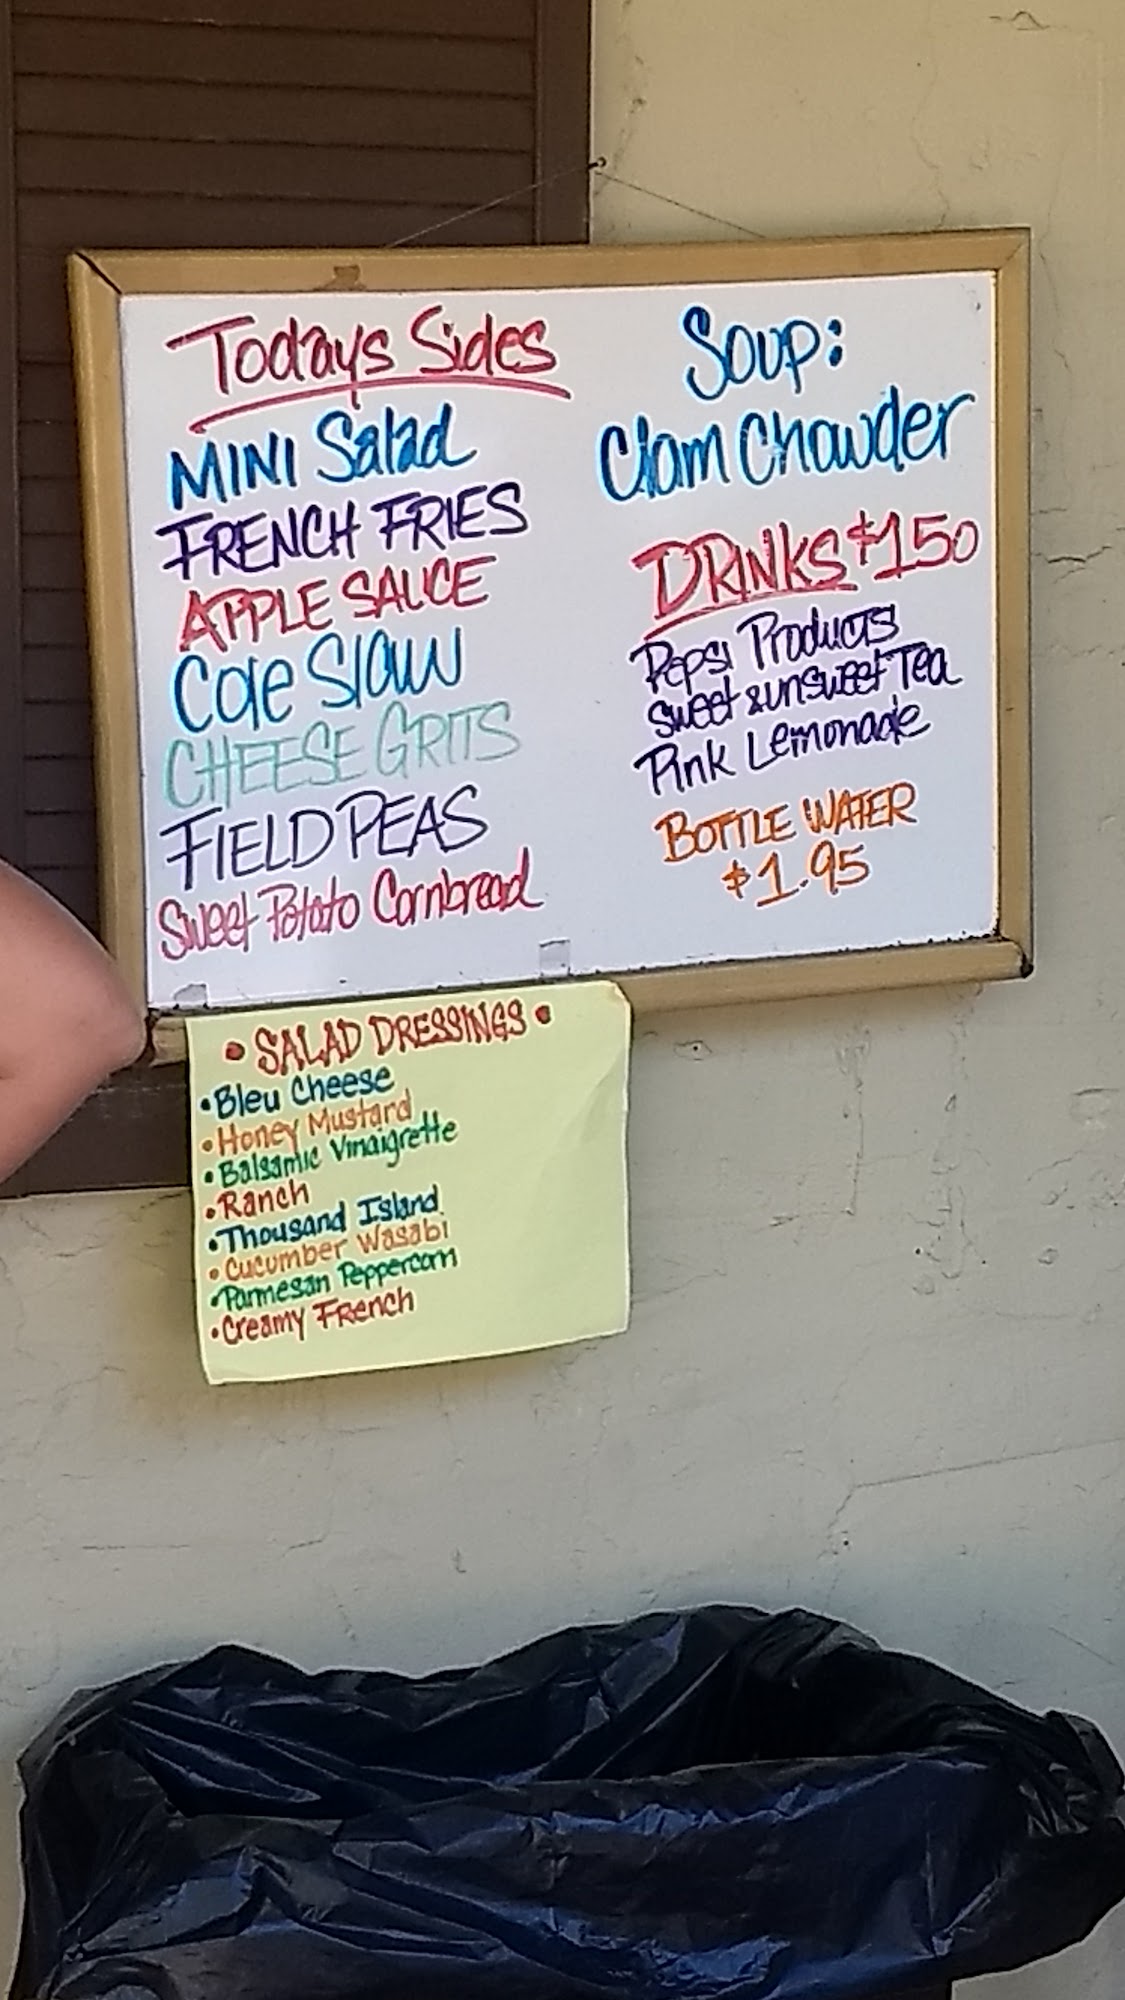 Todays Sides
MINI Salad
FRENCH FRIES
APPLE SAUCE
Cole Slaw
CHEESE GRITS
FIELD PEAS
Sweet Potato Cornbread
Soup:
Clam Chowder
DRINKS $150
Pepsi Products
Sweet & unsweet Tea
Pink Lemonade
BOTTLE WATER
$1.95
• SALAD DRESSINGS •
• Bleu Cheese
• Honey Mustard
• Balsamic Vinaigrette
• Ranch
• Thousand Island
• Cucumber Wasabi
• Parmesan Peppercorn
• Creamy French